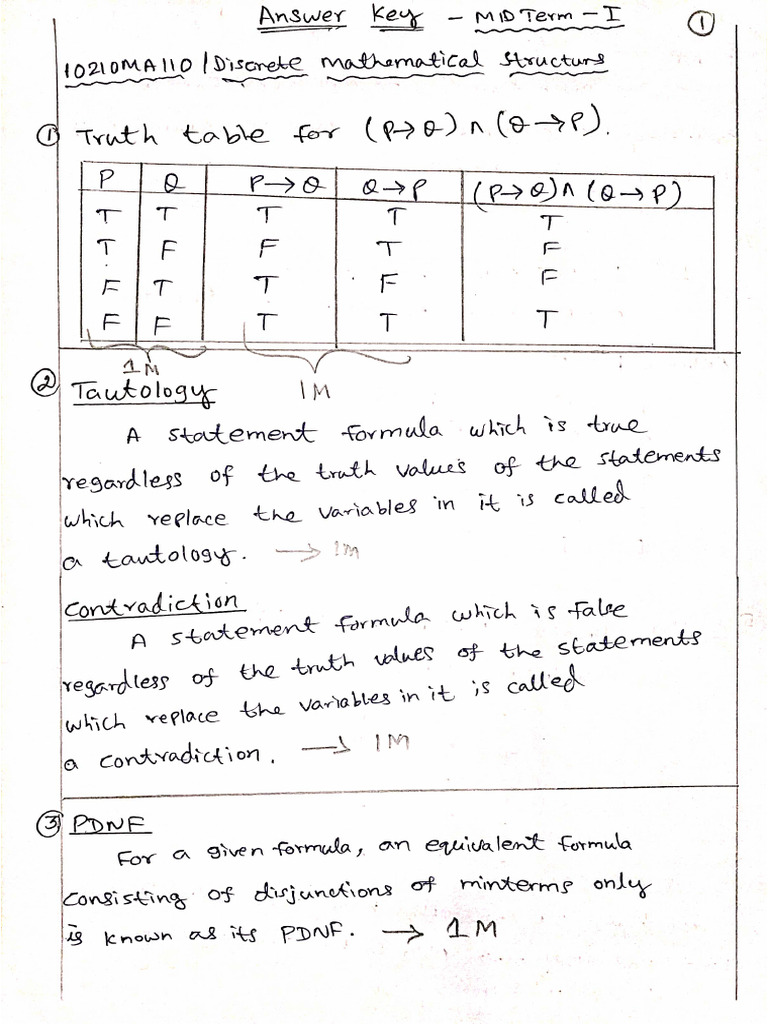 Answer Key - MID Term - I
①
10210MA110 / Discrete Mathematical Structurs
① Truth table for (P→Q) ∧ (Q→P).
P Q P→Q Q→P (P→Q)∧(Q→P)
T T T T T
T F F T F
F T T F F
F F T T T
1M 1M
② Tautology
A statement formula which is true
regardless of the truth values of the statements
which replace the variables in it is called
a tautology. → 1M
Contradiction
A statement formula which is false
regardless of the truth values of the statements
which replace the variables in it is called
a contradiction. → 1M
③ PDNF
For a given formula, an equivalent formula
consisting of disjunctions of minterms only
is known as its PDNF. → 1M